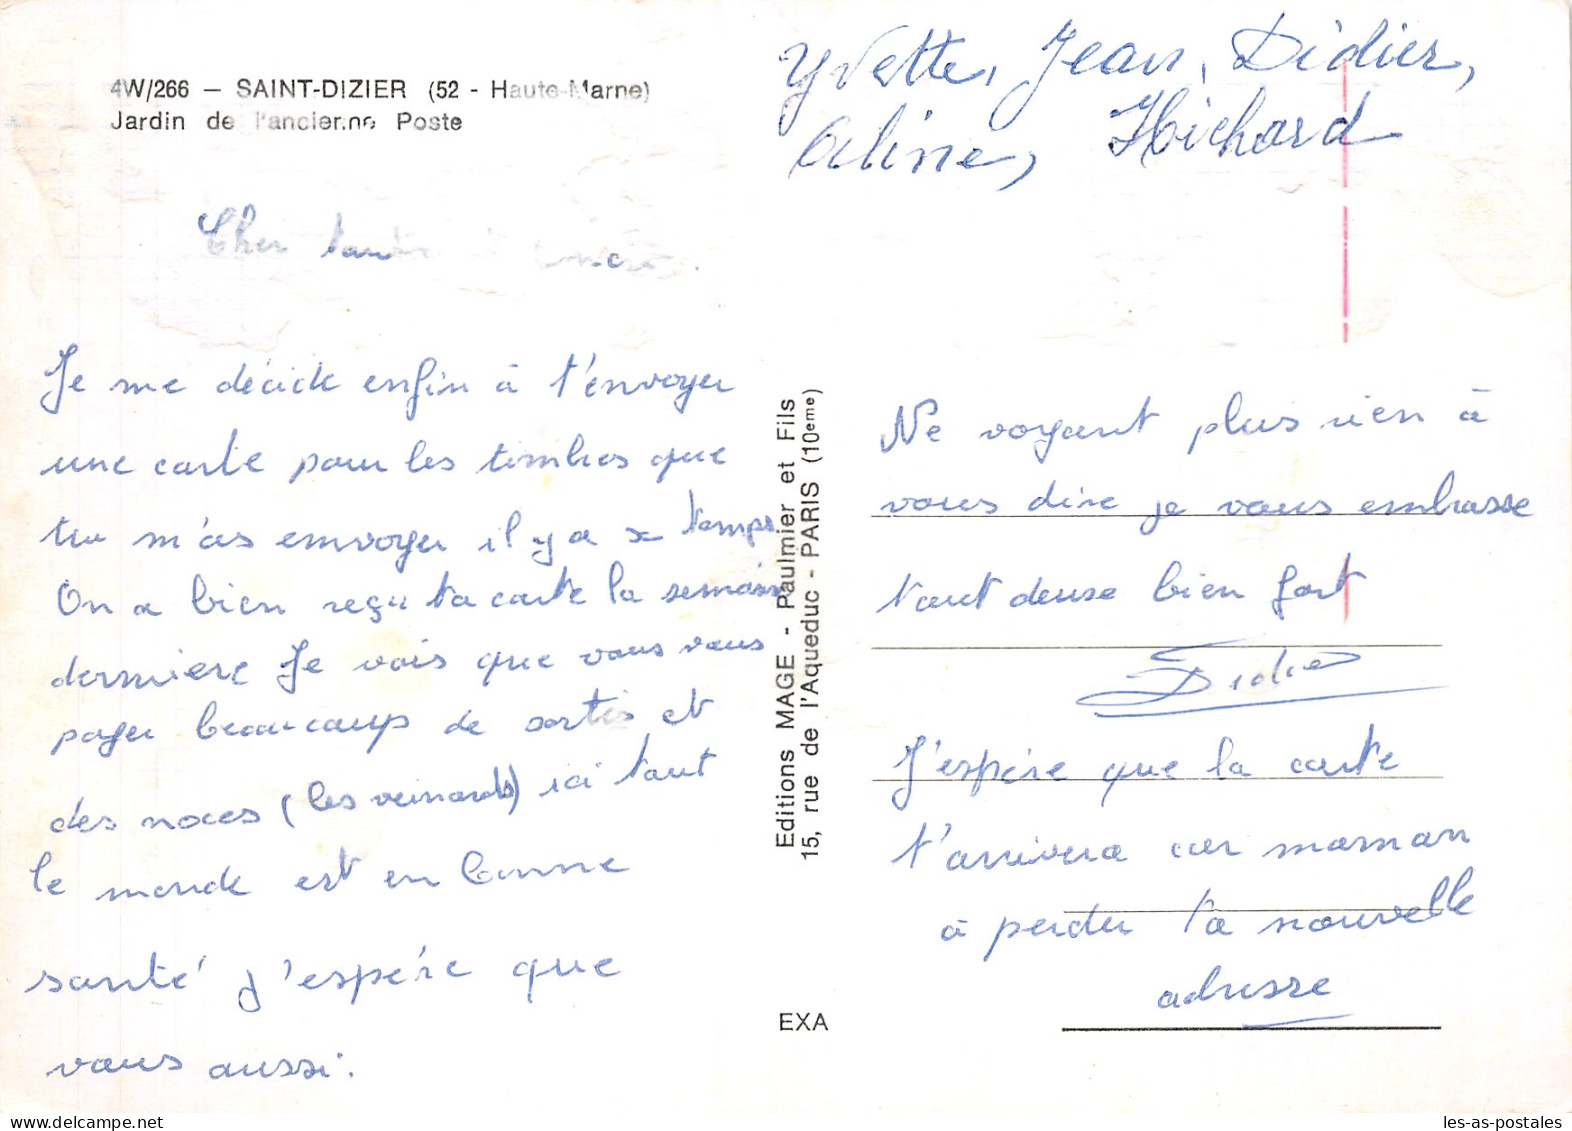 4W/266 — SAINT-DIZIER (52 - Haute-Marne)
Jardin de l'ancienne Poste
Cher
Je me décide enfin à t'envoyer
une carte pour les timbres que
tu m'as envoyer il y a x temps
On a bien reçu ta carte la semaine
derniere Je vois que vous vous
payer beaucoup de sortis et
des noces (les veinards) ici tout
le monde est en bonne
santé j'espére que
vous aussi.
Editions MAGE - Paulmier et Fils
15, rue de l'Aqueduc - PARIS (10eme)
EXA
Yvette, Jean, Didier,
Aline,
Ne voyant plus rien à
vous dire je vous embrasse
tout deuse bien fort
Didier
J'espére que la carte
t'arrivera car maman
à perdu ta nouvelle
adresse
les-as-postales